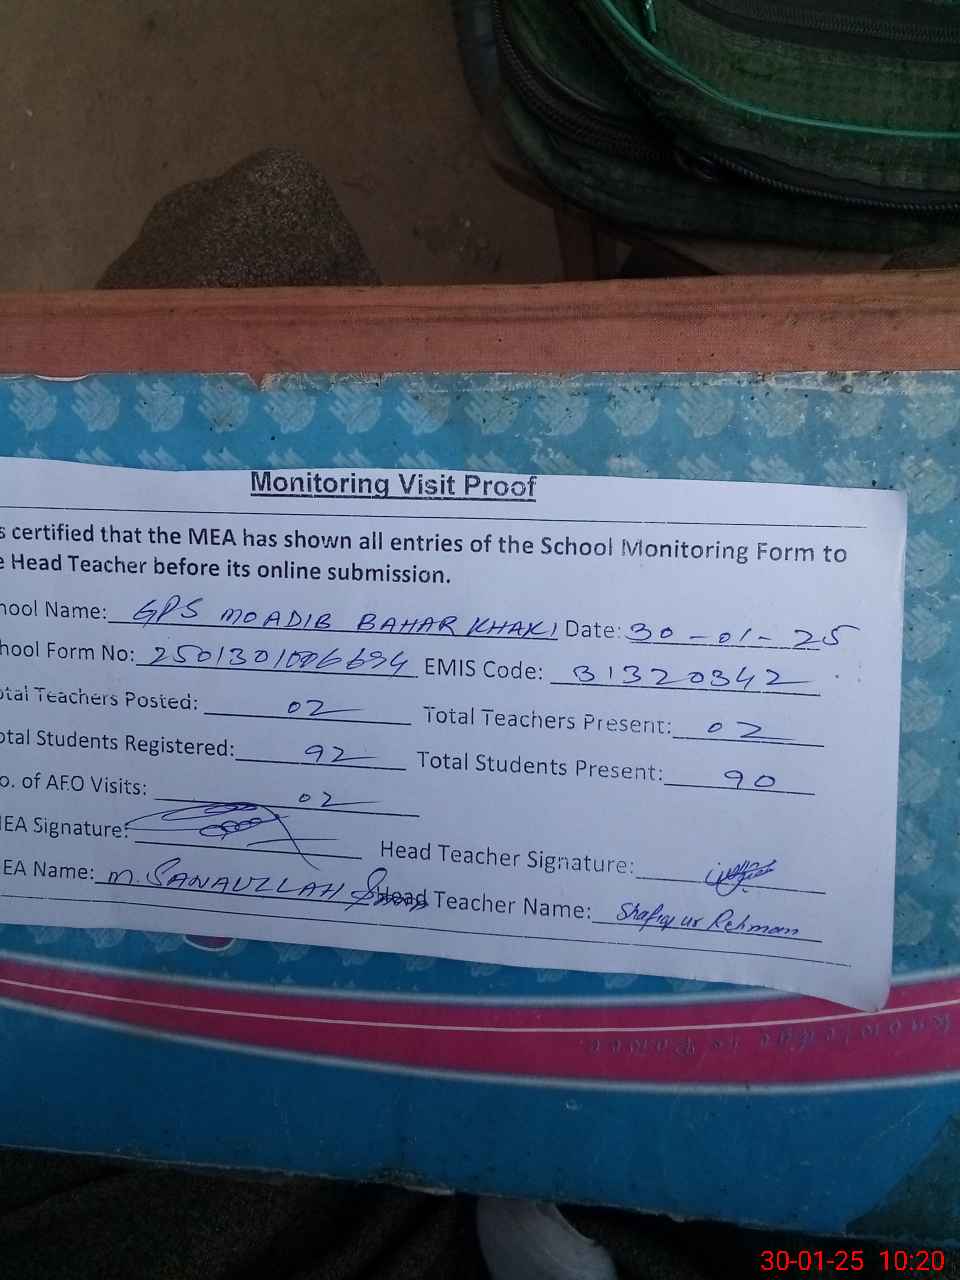 Monitoring Visit Proof
s certified that the MEA has shown all entries of the School Monitoring Form to
e Head Teacher before its online submission.
hool Name: GPS MOADIB BAHAR KHAKI Date: 30-01-25
hool Form No: EMIS Code: 31320342
otal Teachers Posted: 02 Total Teachers Present: 02
otal Students Registered: 92 Total Students Present: 90
o. of AEO Visits: 02
MEA Signature: Head Teacher Signature:
EA Name: M. SANAULLAH Head Teacher Name: Shafiq ur Rehman
Knowledge is Power
30-01-25 10:20